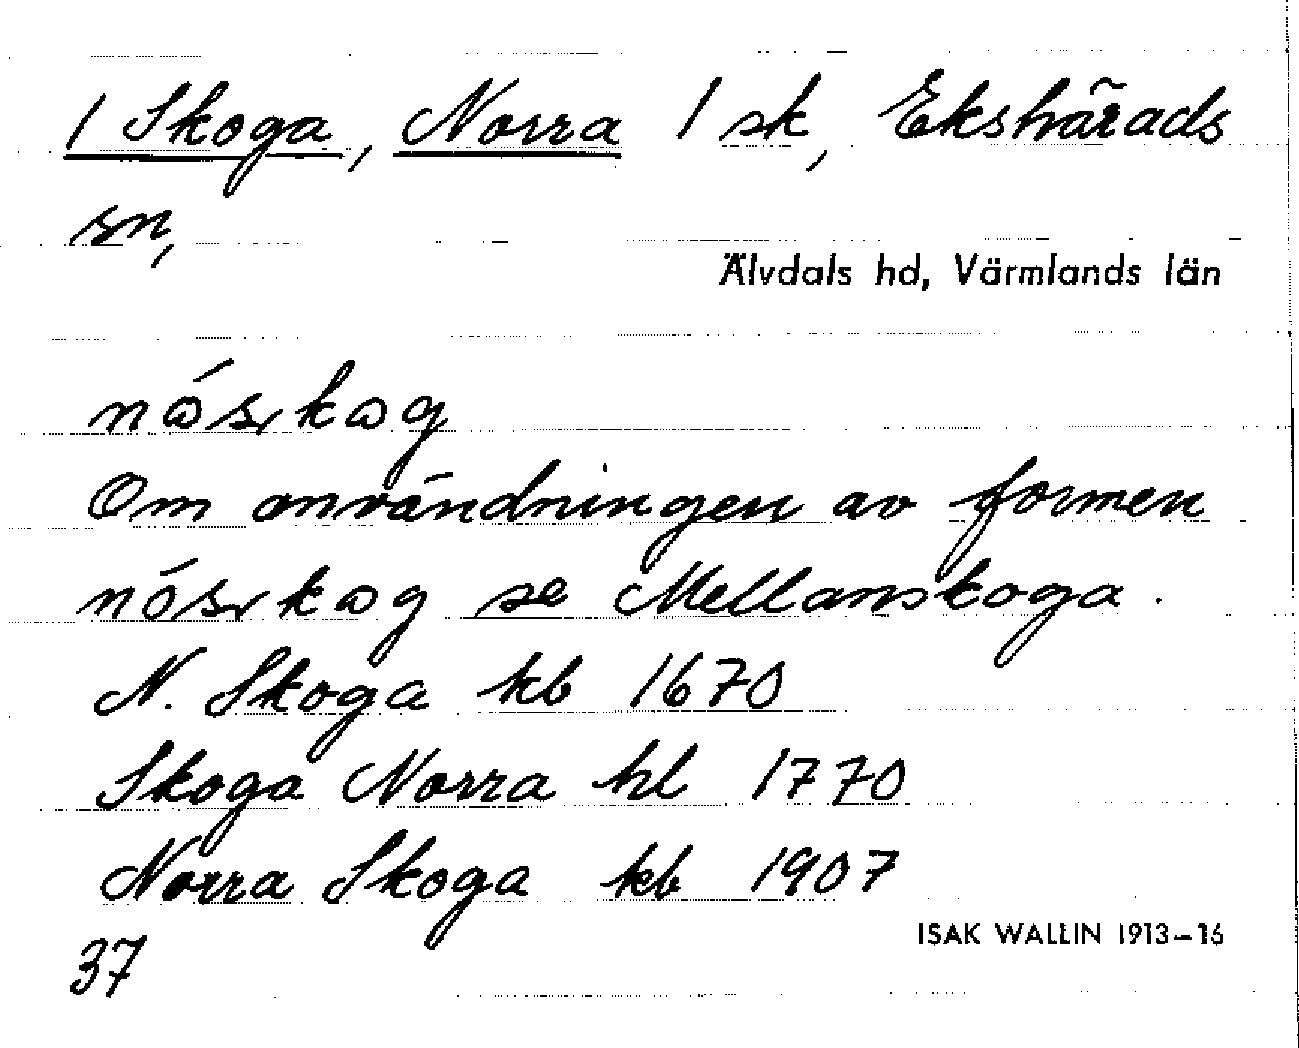 / Skoga, Norra / sk, Ekshärads
sn,
Älvdals hd, Värmlands län
nåśrkog
Om användningen av formen
nósrkog se Mellanskoga.
N. Skoga kb 1670
Skoga Norra hl 1770
Norra Skoga kb 1907
37
ISAK WALLIN 1913–16